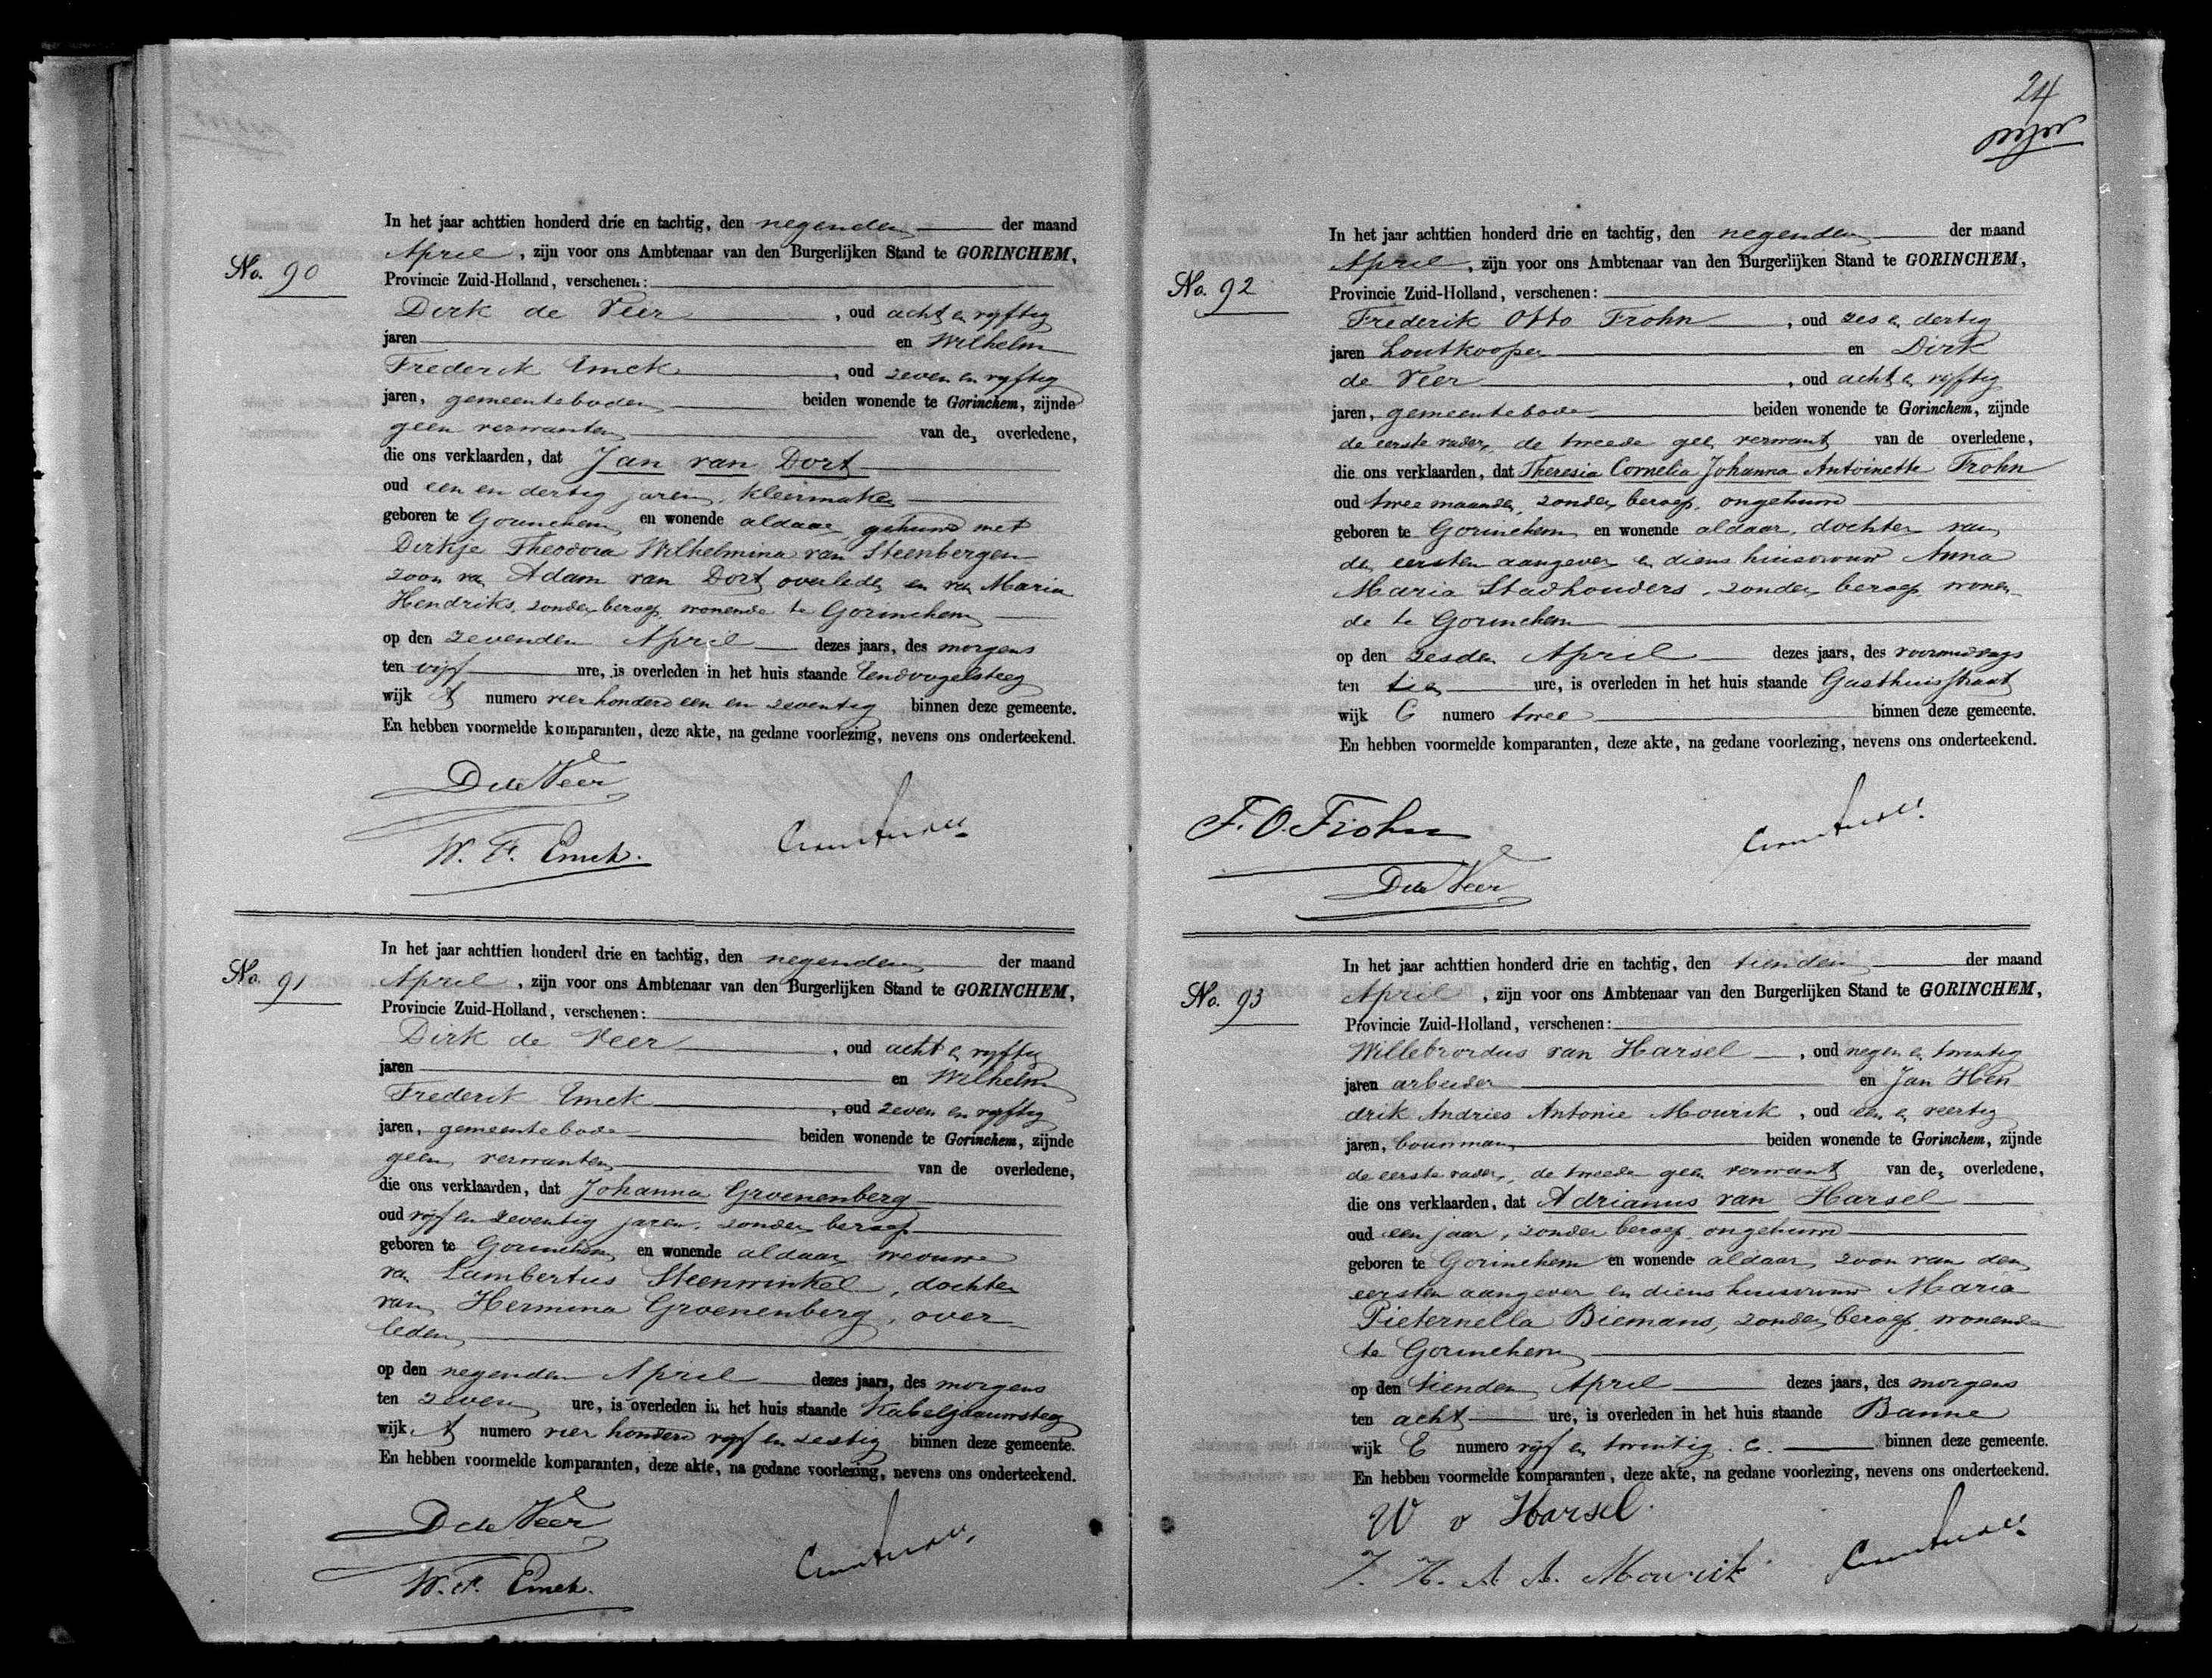 No. 90
In het jaar achttien honderd drie en tachtig, den negenden der maand
April, zijn voor ons Ambtenaar van den Burgerlijken Stand te GORINCHEM,
Provincie Zuid-Holland, verschenen:
Dirk de Veer, oud acht en vyftig
jaren en Wilhelm
Frederik Emck, oud zeven en vyftig
jaren, gemeenteboden beiden wonende te Gorinchem, zijnde
geen verwanten van den overledene,
die ons verklaarden, dat Jan van Dort
oud een en dertig jaren, kleermaker
geboren te Gorinchem en wonende aldaar, gehuwd met
Dirkje Theodora Wilhelmina van Steenbergen
zoon van Adam van Dort overleden en van Maria
Hendriks, zonder beroep, wonende te Gorinchem
op den zevenden April dezes jaars, des morgens
ten vijf ure, is overleden in het huis staande Eendvogelsteeg
wijk A numero vier honderd een en zeventig binnen deze gemeente.
En hebben voormelde komparanten, deze akte, na gedane voorlezing, nevens ons onderteekend.
D de Veer
W. F. Emck.
No. 91
In het jaar achttien honderd drie en tachtig, den negenden der maand
April, zijn voor ons Ambtenaar van den Burgerlijken Stand te GORINCHEM,
Provincie Zuid-Holland, verschenen:
Dirk de Veer, oud acht en vyftig
jaren en Wilhelm
Frederik Emck, oud zeven en vyftig
jaren, gemeentebode beiden wonende te Gorinchem, zijnde
geen verwanten van de overledene,
die ons verklaarden, dat Johanna Groenenberg
oud vijf en zeventig jaren, zonder beroep
geboren te Gorinchem en wonende aldaar, weduwe
van Lambertus Steenwinkel, dochter
van Hermina Groenenberg, over
leden
op den negenden April dezes jaars, des morgens
ten zeven ure, is overleden in het huis staande Kabeljaauwsteeg
wijk A numero vier honderd vijf en zestig binnen deze gemeente.
En hebben voormelde komparanten, deze akte, na gedane voorlezing, nevens ons onderteekend.
D de Veer
W. F. Emck.
24
No. 92
In het jaar achttien honderd drie en tachtig, den negenden der maand
April, zijn voor ons Ambtenaar van den Burgerlijken Stand te GORINCHEM,
Provincie Zuid-Holland, verschenen:
Frederik Otto Frohn, oud zes en dertig
jaren houtkooper en Dirk
de Veer, oud acht en vijftig
jaren, gemeentebode beiden wonende te Gorinchem, zijnde
de eerste vader, de tweede geen verwant van de overledene,
die ons verklaarden, dat Theresia Cornelia Johanna Antoinette Frohn
oud twee maanden, zonder beroep, ongehuwd
geboren te Gorinchem en wonende aldaar, dochter van
den eersten aangever en diens huisvrouw Anna
Maria Stadhouders, zonder beroep, wonen
de te Gorinchem
op den zesden April dezes jaars, des voormiddags
ten tien ure, is overleden in het huis staande Gasthuisstraat
wijk C numero twee binnen deze gemeente.
En hebben voormelde komparanten, deze akte, na gedane voorlezing, nevens ons onderteekend.
F. O. Frohn
D de Veer
No. 93
In het jaar achttien honderd drie en tachtig, den tienden der maand
April, zijn voor ons Ambtenaar van den Burgerlijken Stand te GORINCHEM,
Provincie Zuid-Holland, verschenen:
Willebrordus van Harsel, oud negen en twintig
jaren arbeider en Jan Hen
drik Andries Antonie Mourik, oud een en veertig
jaren, bouwman beiden wonende te Gorinchem, zijnde
de eerste vader, de tweede geen verwant van den overledene,
die ons verklaarden, dat Adrianus van Harsel
oud een jaar, zonder beroep, ongehuwd
geboren te Gorinchem en wonende aldaar, zoon van den
eersten aangever en diens huisvrouw Maria
Pieternella Biemans, zonder beroep, wonende
te Gorinchem
op den tienden April dezes jaars, des morgens
ten acht ure, is overleden in het huis staande Banne
wijk E numero vijf en twintig. c. binnen deze gemeente.
En hebben voormelde komparanten, deze akte, na gedane voorlezing, nevens ons onderteekend.
W v Harsel.
J. H. A. A. Mourik